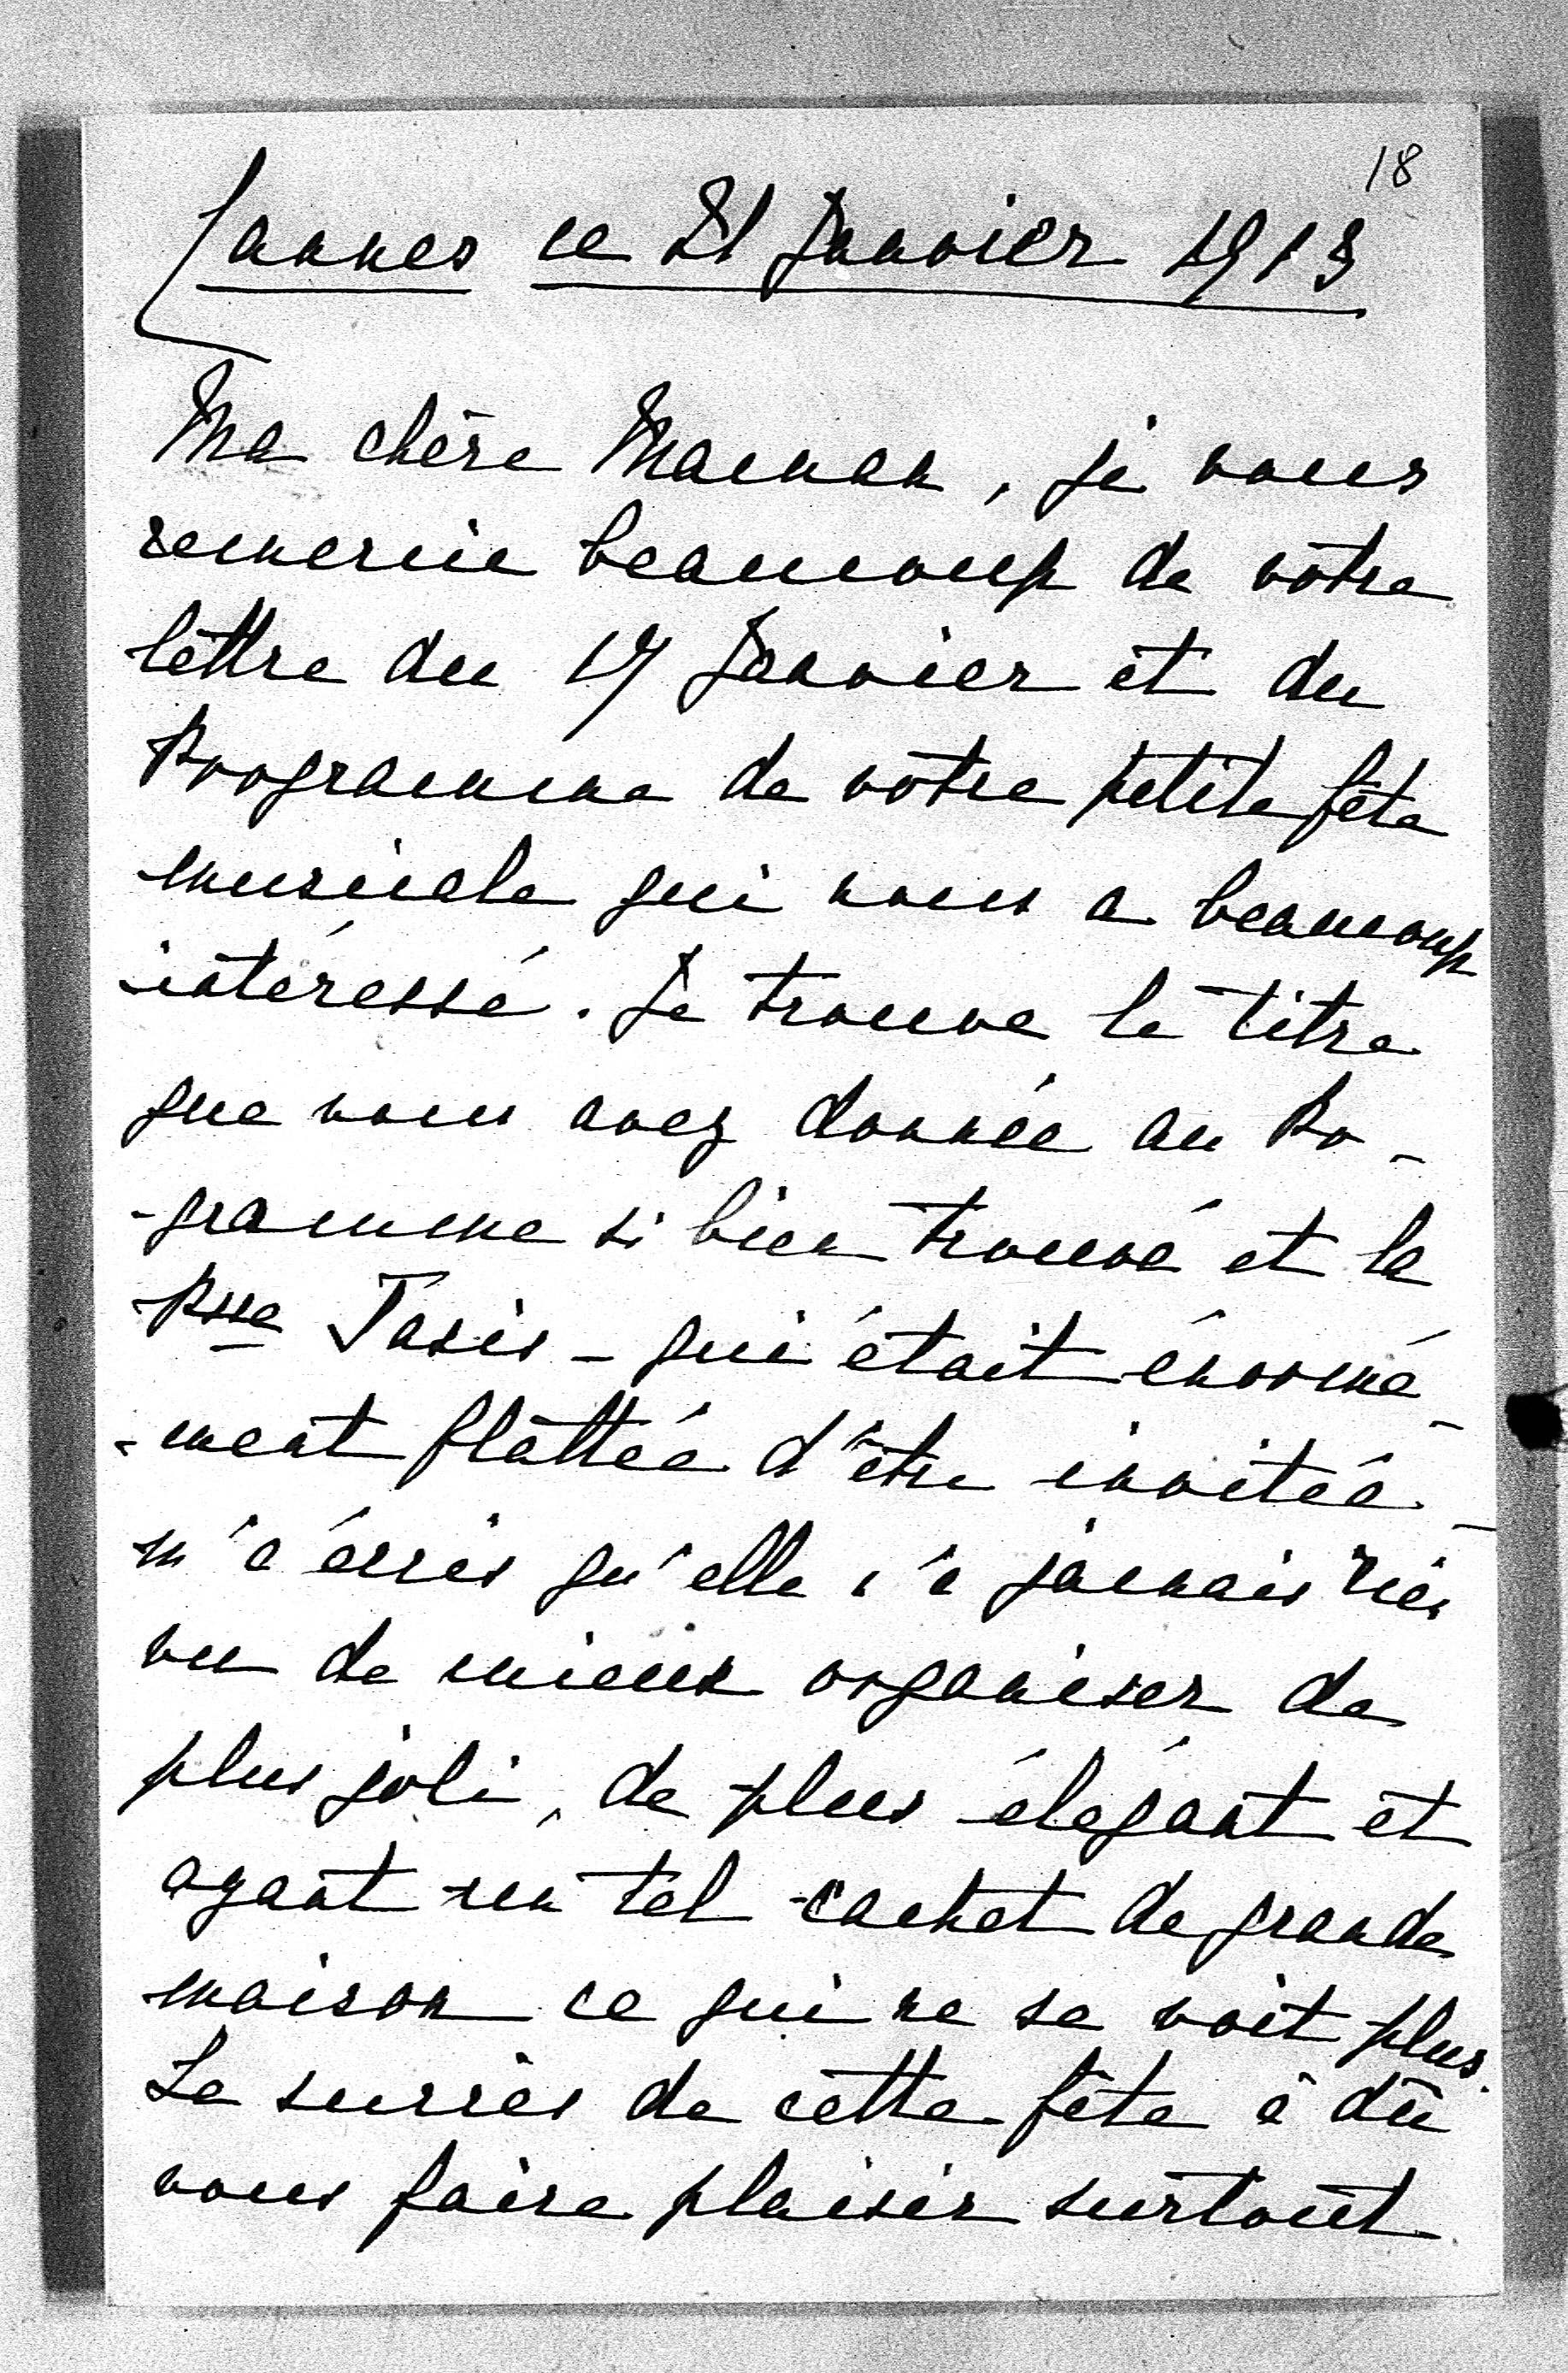 18
Cannes ce 21 Janvier 1913
Ma chère Maman, je vous
remercie beaucoup de vôtre
lèttre du 17 Janvier et du
Programme de vôtre petite fête
musicale qui nous a beaucoup
intéressé. Je trouve le titre
que vous avez donnée au Pro-
-gramme si bien trouvé et la
Psse Tasis - qui était énormé-
-ment flattée d'être invitée -
m'a écris qu'elle n'a jamais rien
vu de mieux organiser de
plus joli, de plus élégant et
ayant un tel cachet de grande
maison ce qui ne se voit plus.
Le succès de cette fête à dû
vous faire plaisir surtout